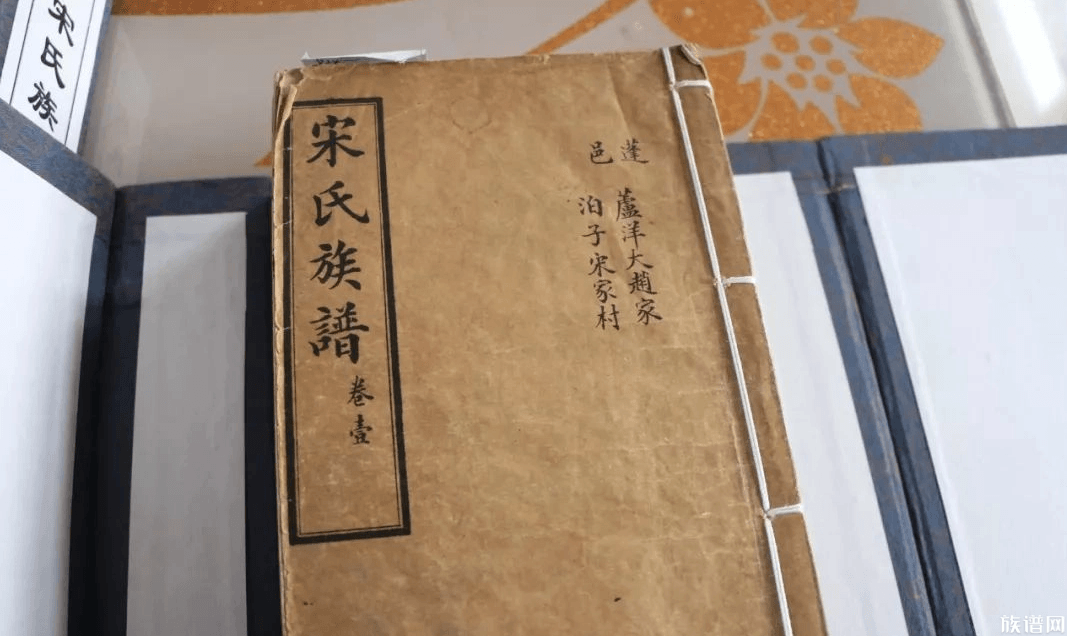 宋氏族
宋氏族譜
卷壹
蓬 蘆洋大趙家
邑 泊子宋家村
族谱网